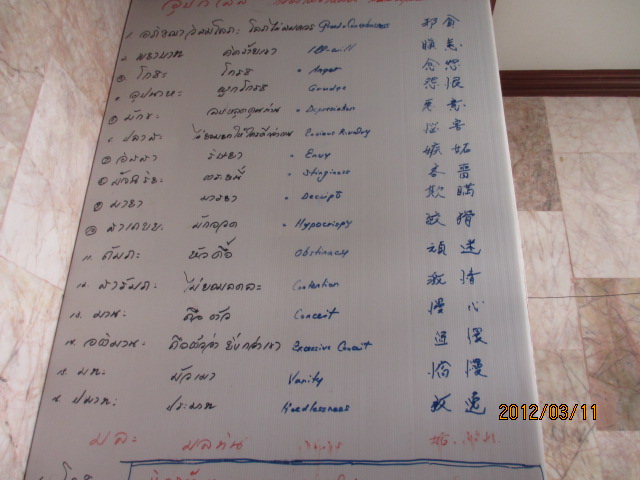 อุปกิเลส
1. อภิชฌาวิสมโลภะ โลภไม่สมควร Greed & Covetousness 邪貪
2. พยาบาท คิดร้ายเขา Ill-will 瞋恚
โกธะ โกรธ Anger 念怒
อุปนาหะ ผูกโกรธ Grudge 怨恨
มักขะ ลบหลู่คุณท่าน Depreciation
ปลาสะ Envious Rivalry
อิสสา ริษยา Envy 嫉妬
มัจฉริยะ ตระหนี่ Stinginess 吝嗇
มายา มารยา Deceipt 欺瞞
สาเถยยะ มักอวด Hypocrispy 狡猾
11. ถัมภะ หัวดื้อ Obstinacy 頑迷
12. สารัมภะ ไม่ยอมลดละ Contention
13. มานะ ถือตัว Conceit 慢心
14. อติมานะ ถือตัวว่ายิ่งกว่าเขา Excessive Conceit 過慢
15. มทะ มัวเมา Vanity
16. ปมาทะ ประมาท Heedlessness 放逸
มละ มลทิน
2012/03/11